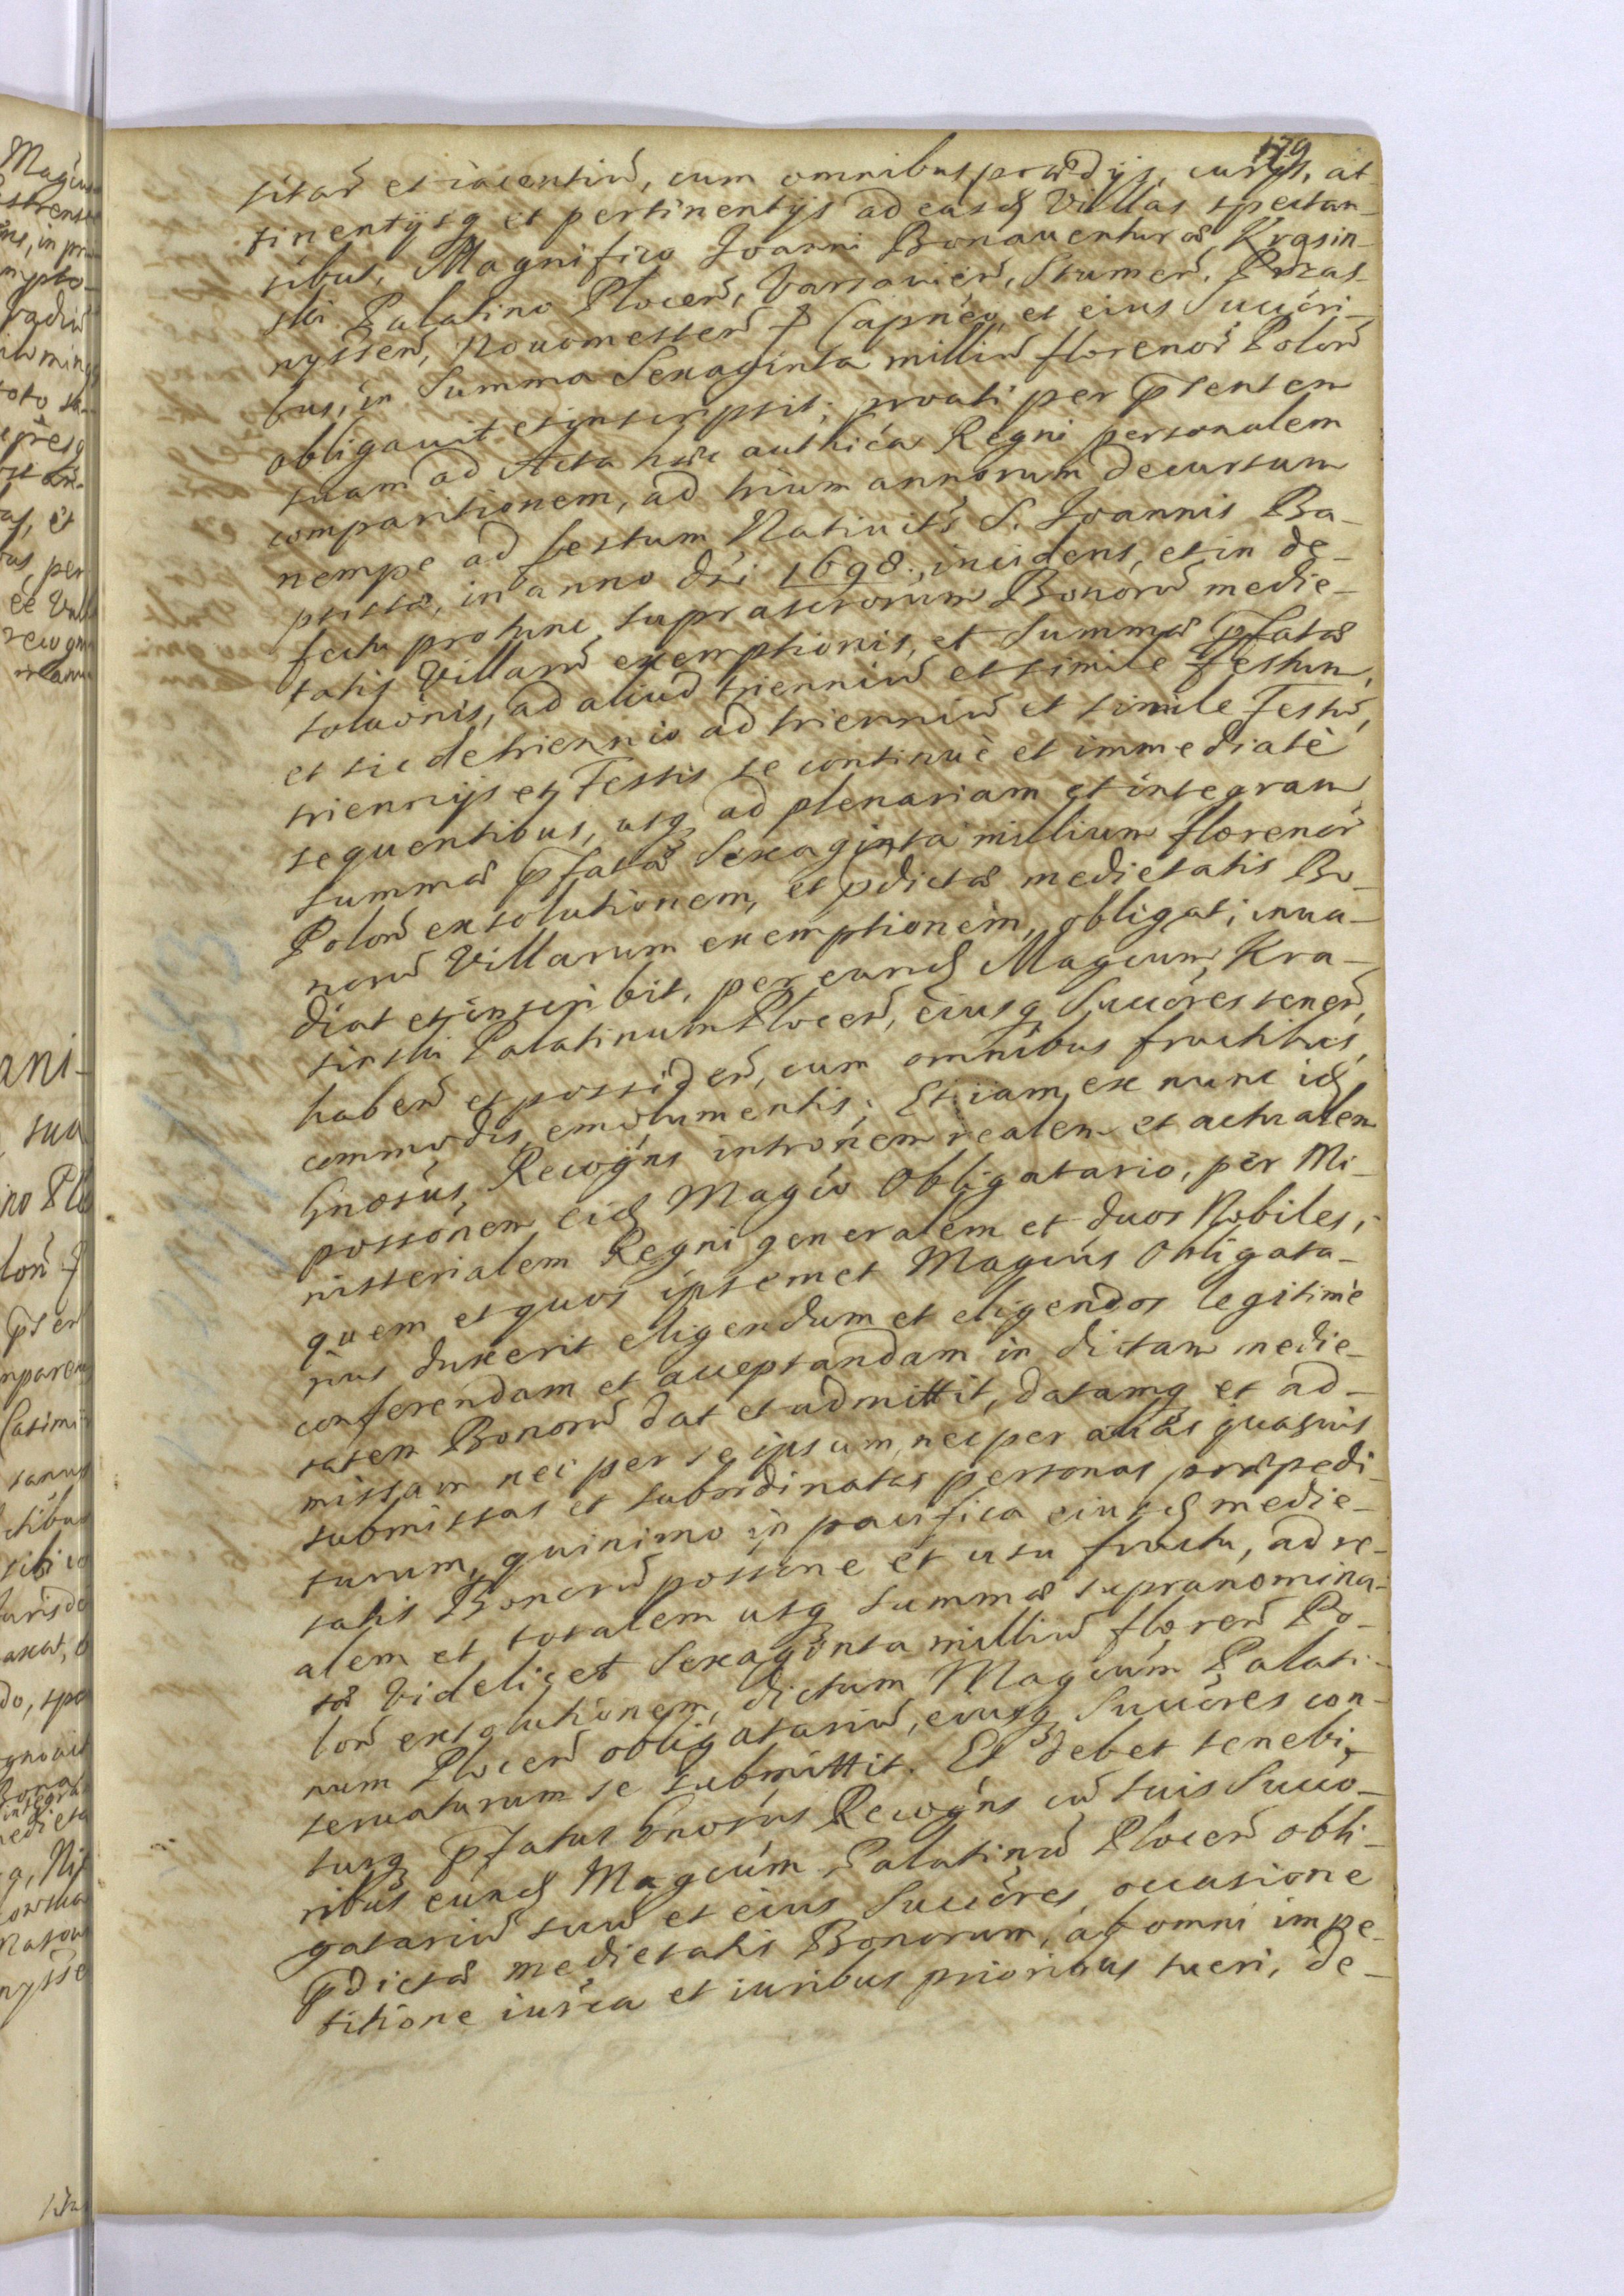 179
sitar̃ et iacentiũ, cum omnibus prædijs, curijs, at-
tinentijsq et pertinentijs ad easd Villas spectan-
tibus, Magnifico Ioanni Bonauenturæ Krasin-
ski Palatino Plocen̄, Varsauien̄, Stumen̄, Przas-
nyssen̄, Nouomesten̄ Capnéo, et eius Succóri-
bus, in Summa Sexaginta milliũ florenor̃ Polon̄
obligauit et inscripsit; prout per pr̄sentem
suam ad Acta hæc authica Regni personalem
comparitionem, ad trium annorum decursum
nempe ad festum Natiuit̃s S. Joannis Ba-
ptistæ, in anno dñi 1698. incidens, et in de-
fectu protunc suprascrorum Bonorũ medie-
tatis Villarũ exemptionis, et Summæ pfatæ
soluónis, ad aliud trienniũ et simile Festum,
et sic de triennio ad trienniũ et simile Festũ,
triennijs et Festis se continuè et immediatè
sequentibus, usq ad plenariam et integram
summæ pfatæ Sexaginta millium florenor̃
Polon̄ exsolutionem, et pdictæ medietatis Bo-
norũ Villarum exemptionem, obligat, inua-
diat et inscribit, per eund Magcum Kra-
sinski Palatinum Plocen̄, eiusq Succóres tenen̄,
haben̄ et possiden̄, cum omnibus fructibus,
commodis, emolumentis; Et iam ex nunc id
Gnosus Recogns introm̃nem realem et actualem
possónem eid Magco Obligatario, per Mi-
nisterialem Regni generalem et duos Nobiles,
quem et quos ipsemet Magcus Obliga​ta-
rius duxerit eligendum et eligendos legitimè
conferendam et acceptandam in dictam medie-
tatem Bonorũ dat et admittit, datamq et ad-
missam nec per se ipsum, nec per alias quasuis
submissas et subordinatas personas præpedi-
turum, quinimo in pacifica eiusd medie-
tatis Bonorũ possóne et usu fructu, ad re-
alem et totalem usq summæ supranomina-
tæ videlicet Sexaginta milliũ floren̄ Po-
lon̄ exsolutionem, dictum Magcum Palati-
num Plocen̄ obligatariũ, eiusq Succóres con-
seruaturum se submittit. Et debet tenebi-
turq pfatus Gnosus Recogns cũ suis Succo-
ribus eund Magcum Palatinũ Plocen̄ obli-
gatariũ suũ et eius Succóres, occasione
pdictæ medietatis Bonorum, ab omni impe-
titione iur̃ca et iuribus prioribus tueri, de-